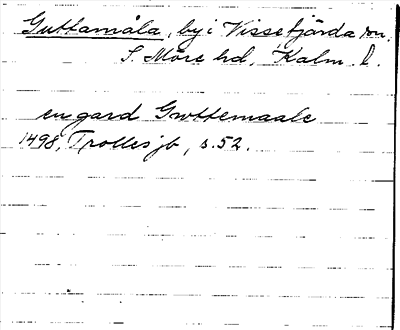 Guttamåla, by i Vissefjärda sn.
S. Möre hd, Kalm. l.
en gard Gwttemaale
1498, Trolles jb, s. 52.